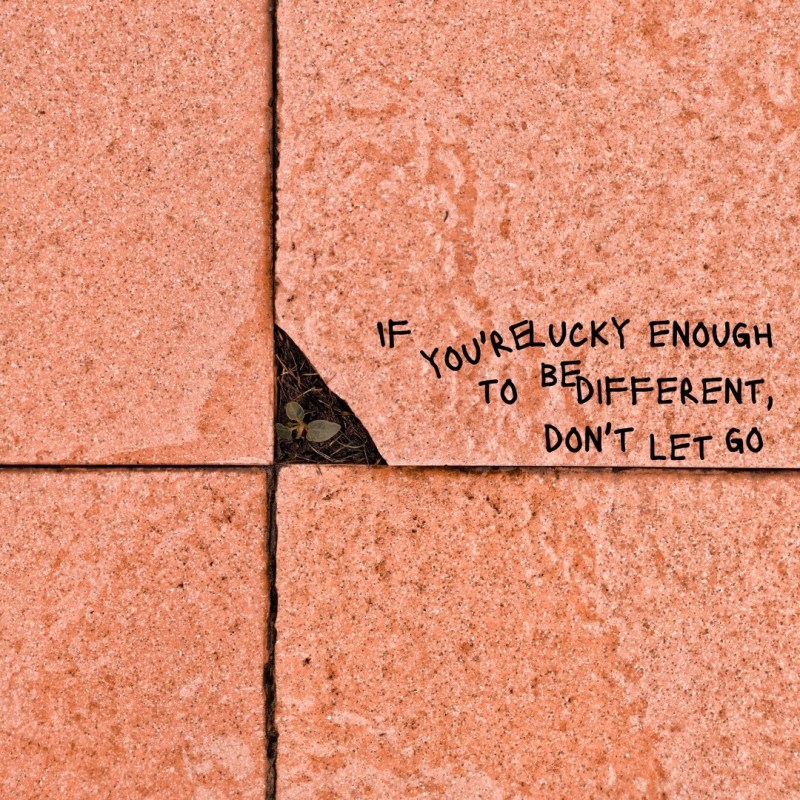 IF YOU'RE LUCKY ENOUGH
TO BE DIFFERENT,
DON'T LET GO